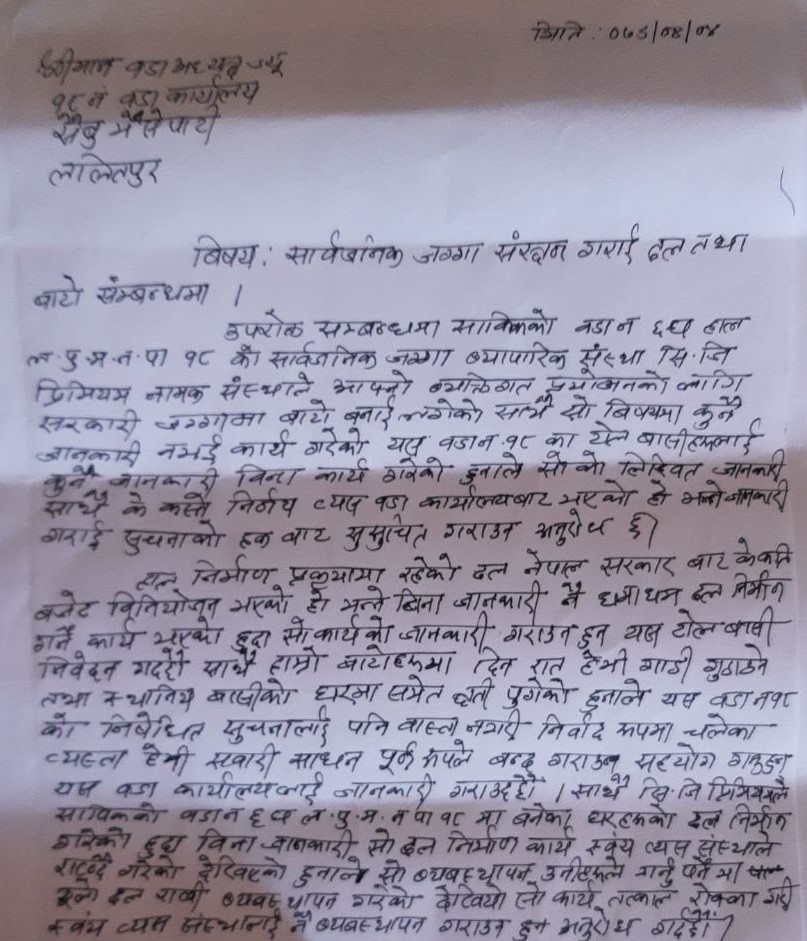 मिति : ०७५/०४/०४
श्रीमान वडा अध्यक्ष ज्यू
१८ नं वडा कार्यालय
सैबु भैसेपाटी
ललितपुर
विषय: सार्वजनिक जग्गा संरक्षन गराई ढल तथा
बाटो सम्बन्धमा ।
उपरोक्त सम्बन्धमा साविकको वडा न ६घ हाल
ल.पु.म.न.पा १८ को सार्वजनिक जग्गा ब्यापारिक संस्था सि.जि
प्रिमियम नामक संस्थाले आफ्नो ब्यक्तिगत प्रयोजनको लागि
सरकारी जग्गामा बाटो बनाई लगेको साथै सो बिषयमा कुनै
जानकारी नभई कार्य गरेको यस वडा न.१८ का टोल बासीहरुलाई
कुनै जानकारी बिना कार्य गरेको हुनाले सो को लिखित जानकारी
साथै के कस्तो निर्णय त्यस वडा कार्यालयबाट भएको हो भन्ने जानकारी
गराई सुचनाको हक बाट सुसुचित गराउन अनुरोध छ।
हाल निर्माण प्रकृयामा रहेको ढल नेपाल सरकार बाट के कति
बजेट विनियोजन भएको हो भन्ने बिना जानकारी नै धमाधम ढल निर्मान
गर्ने कार्य भएको हुदा सो कार्य को जानकारी गराउन हुन यस टोल बासी
निवेदन गर्दछौ साथै हाम्रो बाटोहरुमा दिन रात हेभी गाडी गुडाउने
तथा स्थानिय बासीको घरमा समेत क्षती पुगेको हुनाले यस वडा न १८
को निषेधित सुचनालाई पनि वास्ता नगरी निर्वाद रुपमा चलेका
त्यस्ता हेभी सवारी साधन पूर्न रुपले बन्द गराउन सहयोग गर्नुहुन
यस वडा कार्यालयलाई जानकारी गराउदछौ । साथै सि.जि प्रिमियमले
साविकको वडा न ६घ ल.पु.म.न पा १८ मा बनेका घरहरुको ढल निर्मान
गरेको हुदा बिना जानकारी सो ढल निर्माण कार्य स्वंय त्यस संस्थाले
गरेको देखिएको हुनाले सो ब्यबस्थापन उनीहरुले गर्नु पर्ने मा
ढल राखी ब्यबस्थापन गरेको देखियो सो कार्य तत्काल रोक्का गरी
स्वंय त्यस संस्थालाई नै ब्यबस्थापन गराउन हुन अनुरोध गर्दछौं।